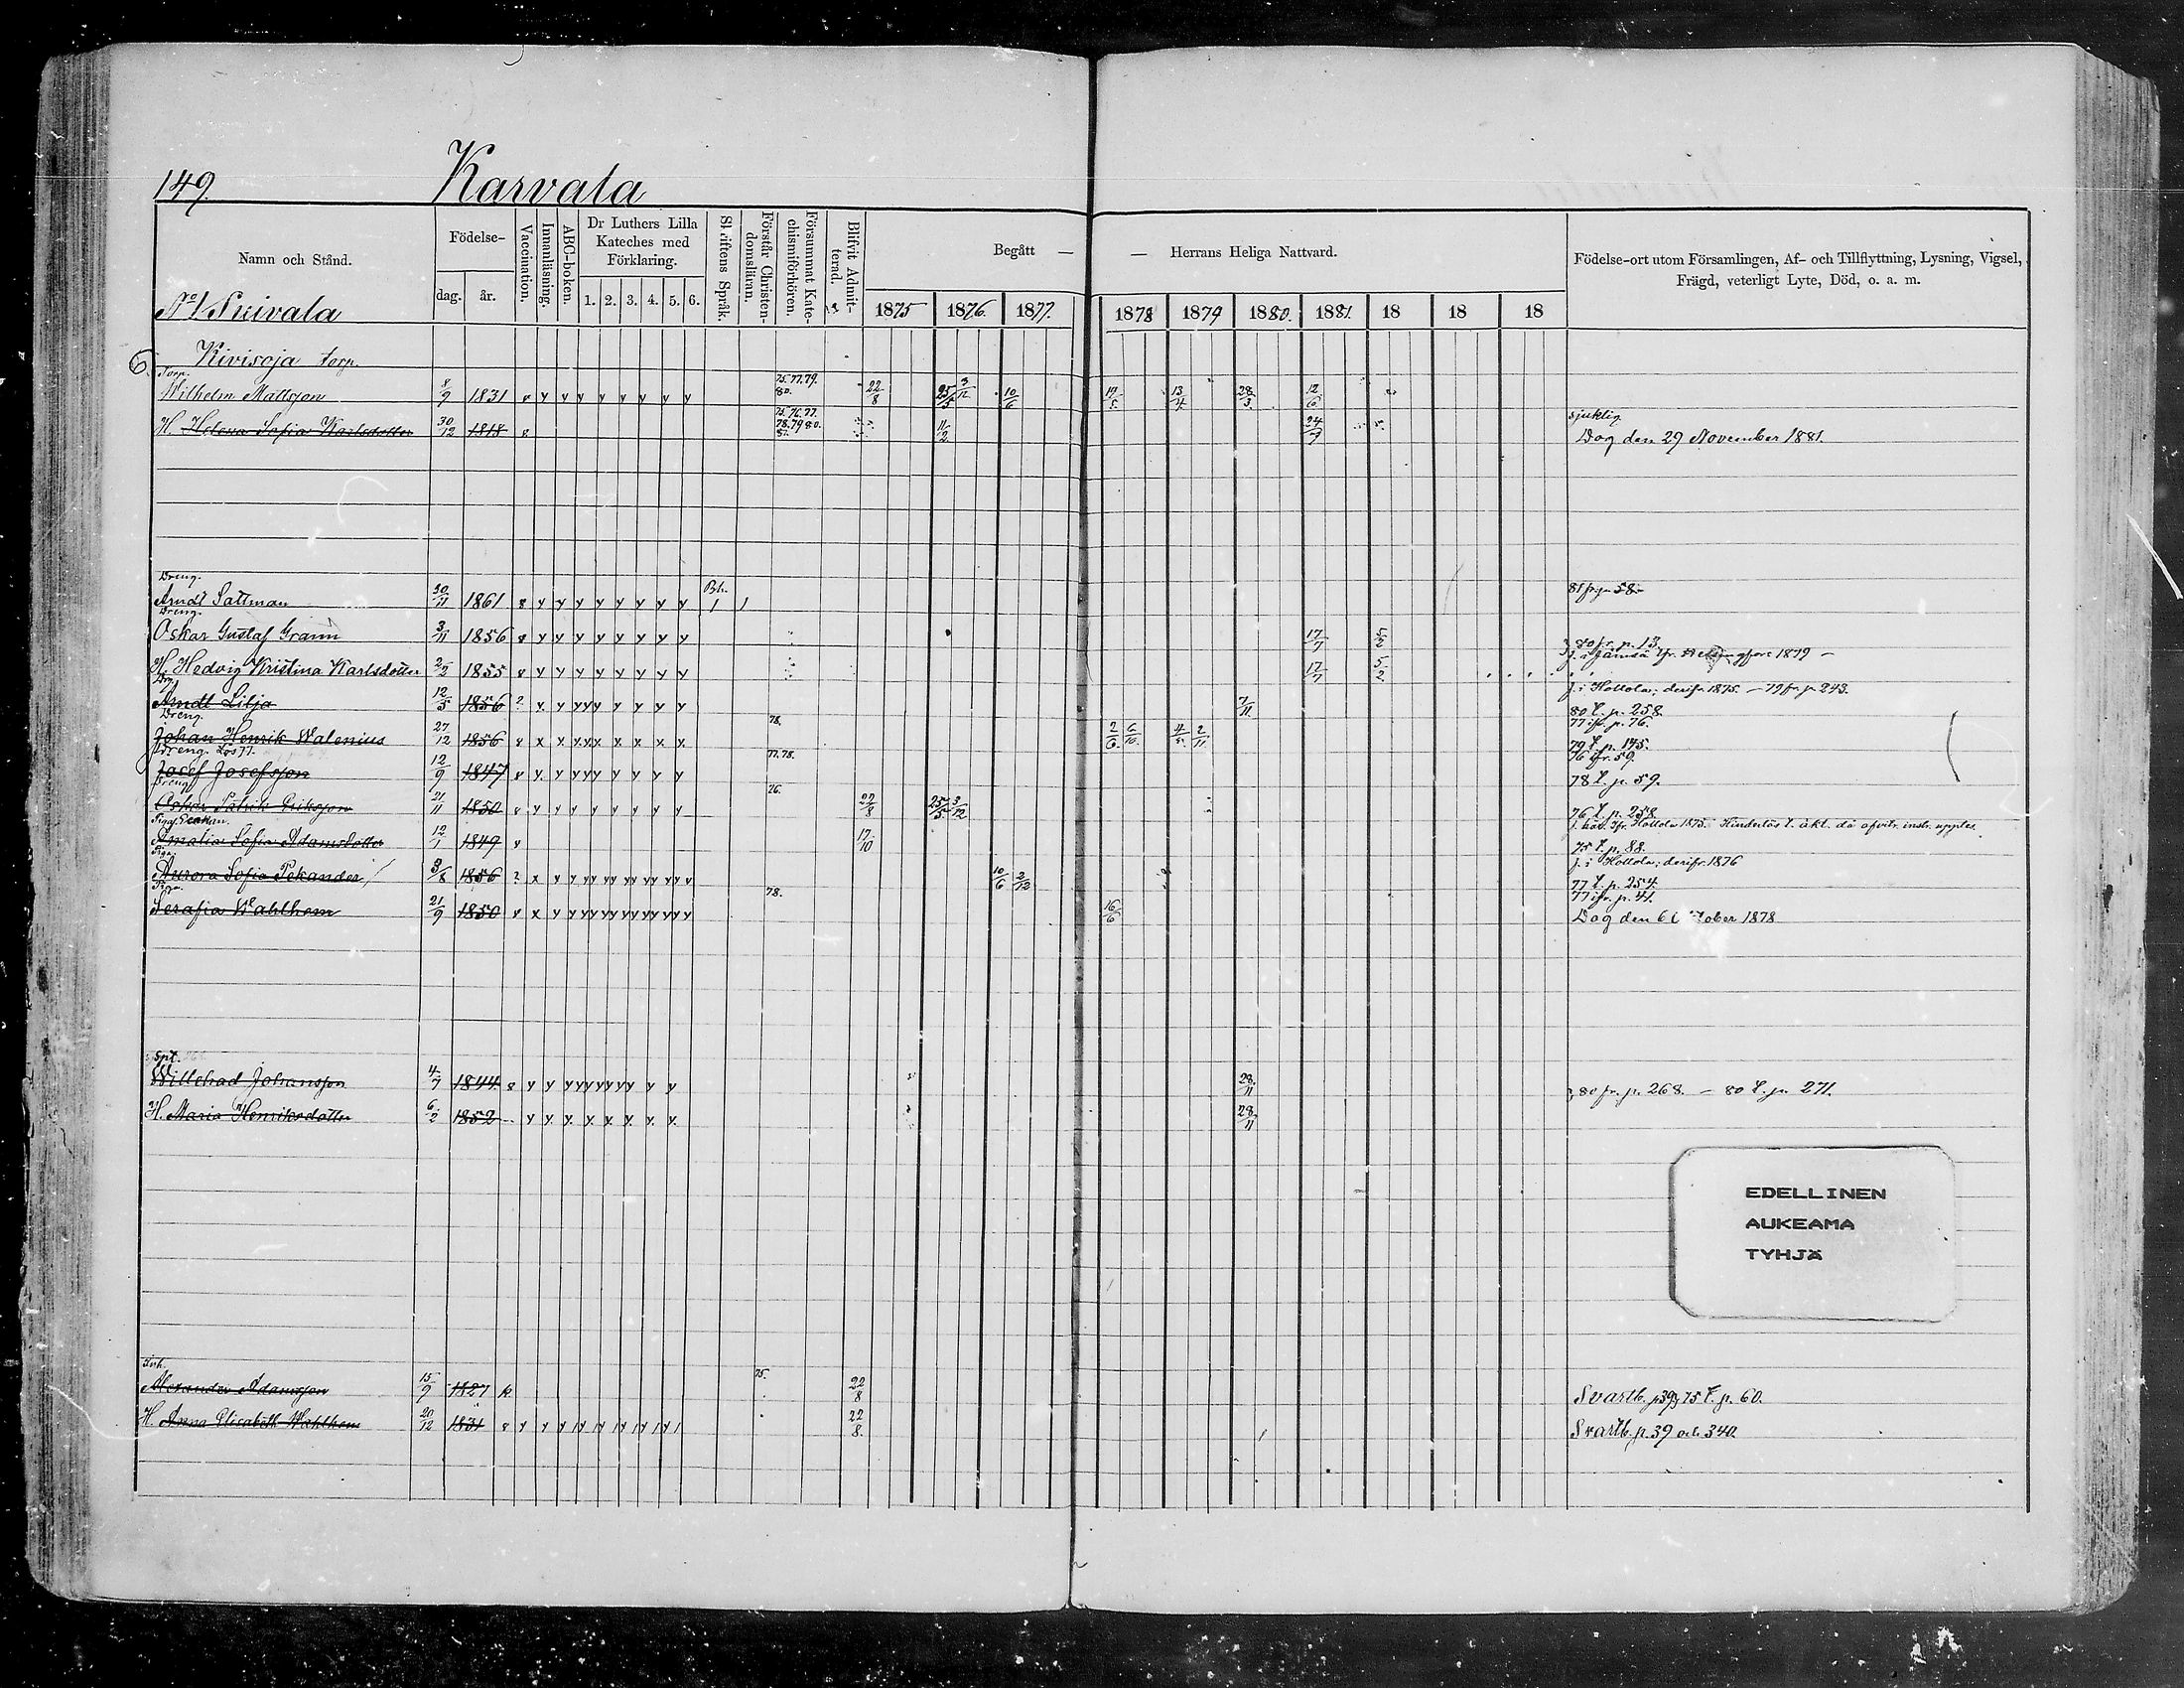 149. Karvala
Namn och Stånd. Födelse- dag. år. Vaccination. Innanläsning. ABC-boken. Dr Luthers Lilla Kateches med Förklaring. 1. 2. 3. 4. 5. 6. Skriftens Språk. Förstår Christendomsläran. Försummat Katechismiförhören. Blifvit Admitterad. Begått — — Herrans Heliga Nattvard. Födelse-ort utom Församlingen, Af- och Tillflyttning, Lysning, Vigsel, Frägd, veterligt Lyte, Död, o. a. m.
1875 1876. 1877. 1878 1879 1880. 1881. 18 18 18
No 1
Kivisoja torp.
Torp.
Wilhelm Mattsson 8/9 1831 v y y y y y y y y 75.77.79. 80. 22/8 25/5 3/12 10/6 17/5 13/4 28/3 12/6
H. Helena Sofia Karlsdotter 30/12 1818 v. 75.76.77. 78.79 80. 81. 11/2 24/7 sjuklig
Dog den 29 November 1881.
Dreng.
Arndt Sattman 30/11 1861 v y y y y y y y y 81 fr. p. 58
Dreng.
Oskar Gustaf Grann 3/11 1856 v y y y y y y y y 17/7 5/2 80 fr. p. 13.
H. Hedvig Kristina Karlsdotter 2/2 1855 v y y y y y y y y 17/7 5/2 f. i Jämsä ifr. Helsingfors 1879 —
Drg.
Arndt Lilja 12/5 1856 ? y y yyy y y y y 7/11 f. i Hollola; derifr. 1875. — 79 fr. p. 243.
80 t. p. 258.
Dreng.
Johan Henrik Walenius 27/12 1856 v x y yyy y y y y 78. 2/6 6/10 4/5 2/11 77 ifr. p. 76.
79 t. p. 145.
Dreng. Lös 77.
Josef Josefsson 12/9 1847 v y y yyy y y y y 77.78. 76 fr. 59.
78 t. p. 59.
Dreng
Oskar Patrik Eriksson 21/11 1850 v y y y y y y y y 76. 22/8 25/5 3/12 76 t. p. 258
Amalia Sofia Adamsdotter 12/1 1849 v 17/10
75 t. p. 88.
Piga.
Aurora Sofia Pekander 3/8 1856 ? x y y yy yy yy yy y 10/6 2/12 f. i Hollola; derifr. 1876
77 t. p. 254.
Piga.
Serafia Wahlhem 21/9 1850 v x y yyyyyyyyyyy 78. 16/6 77 ifr. p. 44.
Dog den 6 October 1878
Spt.
Willehad Johansson 4/7 1844 v y y yyyyyyy y y 28/11 80 fr. p. 268. — 80 t. p. 271.
H. Maria Henriksdotter 6/2 1852 y y y y y y y y 28/11
EDELLINEN
AUKEAMA
TYHJÄ
Inh.
Alexander Adamsson 15/9 1827 k 75. 22/8 Svartb. p 39, 75 t. p. 60.
H. Anna Elisabeth Wahlhem 20/12 1831 22/8. Svartb. p. 39 och 340.